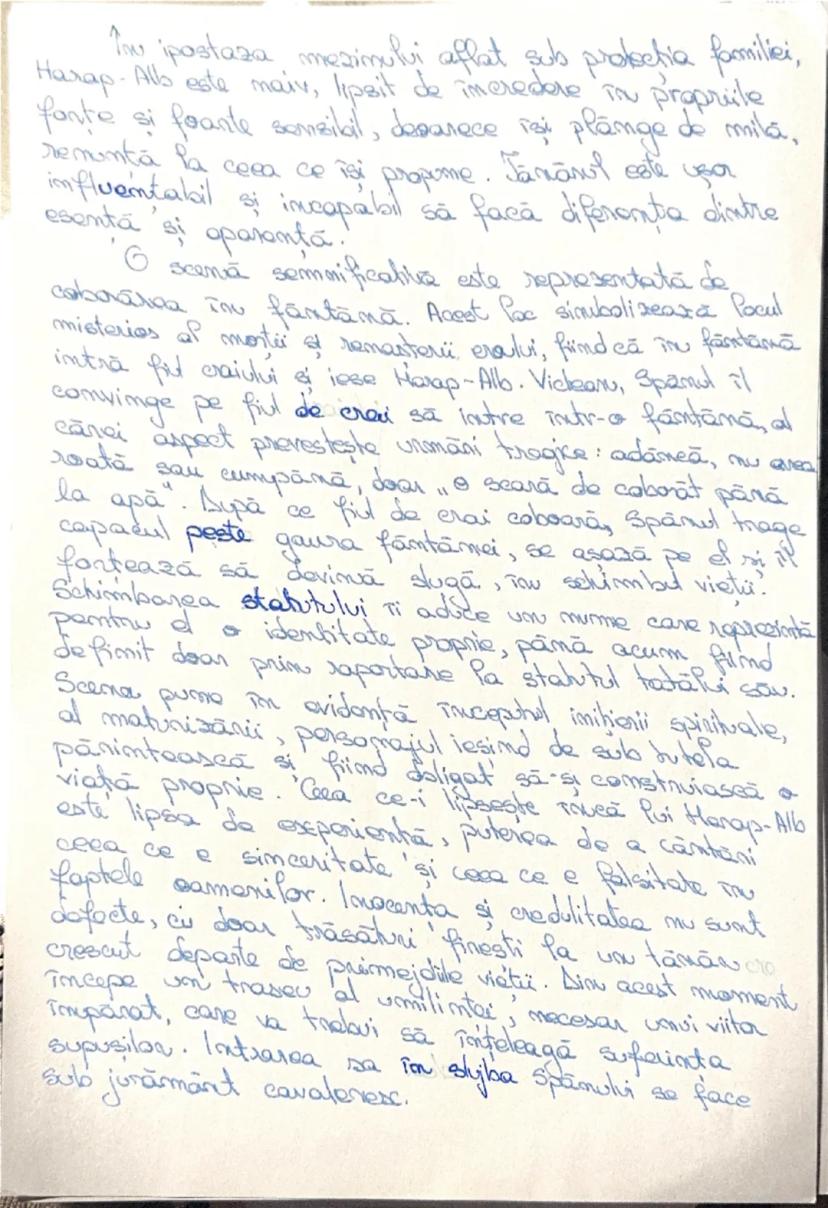 În ipostaza mezinului aflat sub protecția familiei,
Harap-Alb este naiv, lipsit de încredere în propriile
forțe și foarte sensibil, deoarece își plânge de milă,
renunță la ceea ce își propune. Tânărul este ușor
influențabil și incapabil să facă diferența dintre
esență și aparență.
O scenă semnificativă este reprezentată de
coborârea în fântână. Acest loc simbolizează locul
misterios al morții și renasterii eroului, fiindcă în fântână
intră fiul craiului și iese Harap-Alb. Viclean, Spânul îl
convinge pe fiul de crai să intre într-o fântână, al
cărei aspect prevestește urmări tragice: adâncă, nu avea
roată sau cumpănă, doar „o scară de coborât până
la apă". După ce fiul de crai coboară, Spânul trage
capacul peste gaura fântânei, se așază pe el și îl
forțează să devină slugă, în schimbul vieții.
Schimbarea statutului îi aduce un nume care reprezintă
pentru el o identitate proprie, până acum fiind
definit doar prin raportare la statutul tatălui său.
Scena pune în evidență începutul inițierii spirituale,
al maturizării, personajul ieșind de sub tutela
părintească și fiind obligat să-și construiască o
viață proprie. Ceea ce-i lipsește încă lui Harap-Alb
este lipsa de experiență, puterea de a cântări
ceea ce e sinceritate și ceea ce e falsitate în
faptele oamenilor. Inocența și credulitatea nu sunt
defecte, ci doar trăsături firești la un tânăr
crescut departe de primejdiile vieții. Din acest moment
începe un traseu al umilinței, necesar unui viitor
împărat, care va trebui să înțeleagă suferința
supușilor. Intrarea sa în slujba Spânului se face
sub jurământ cavaleresc.